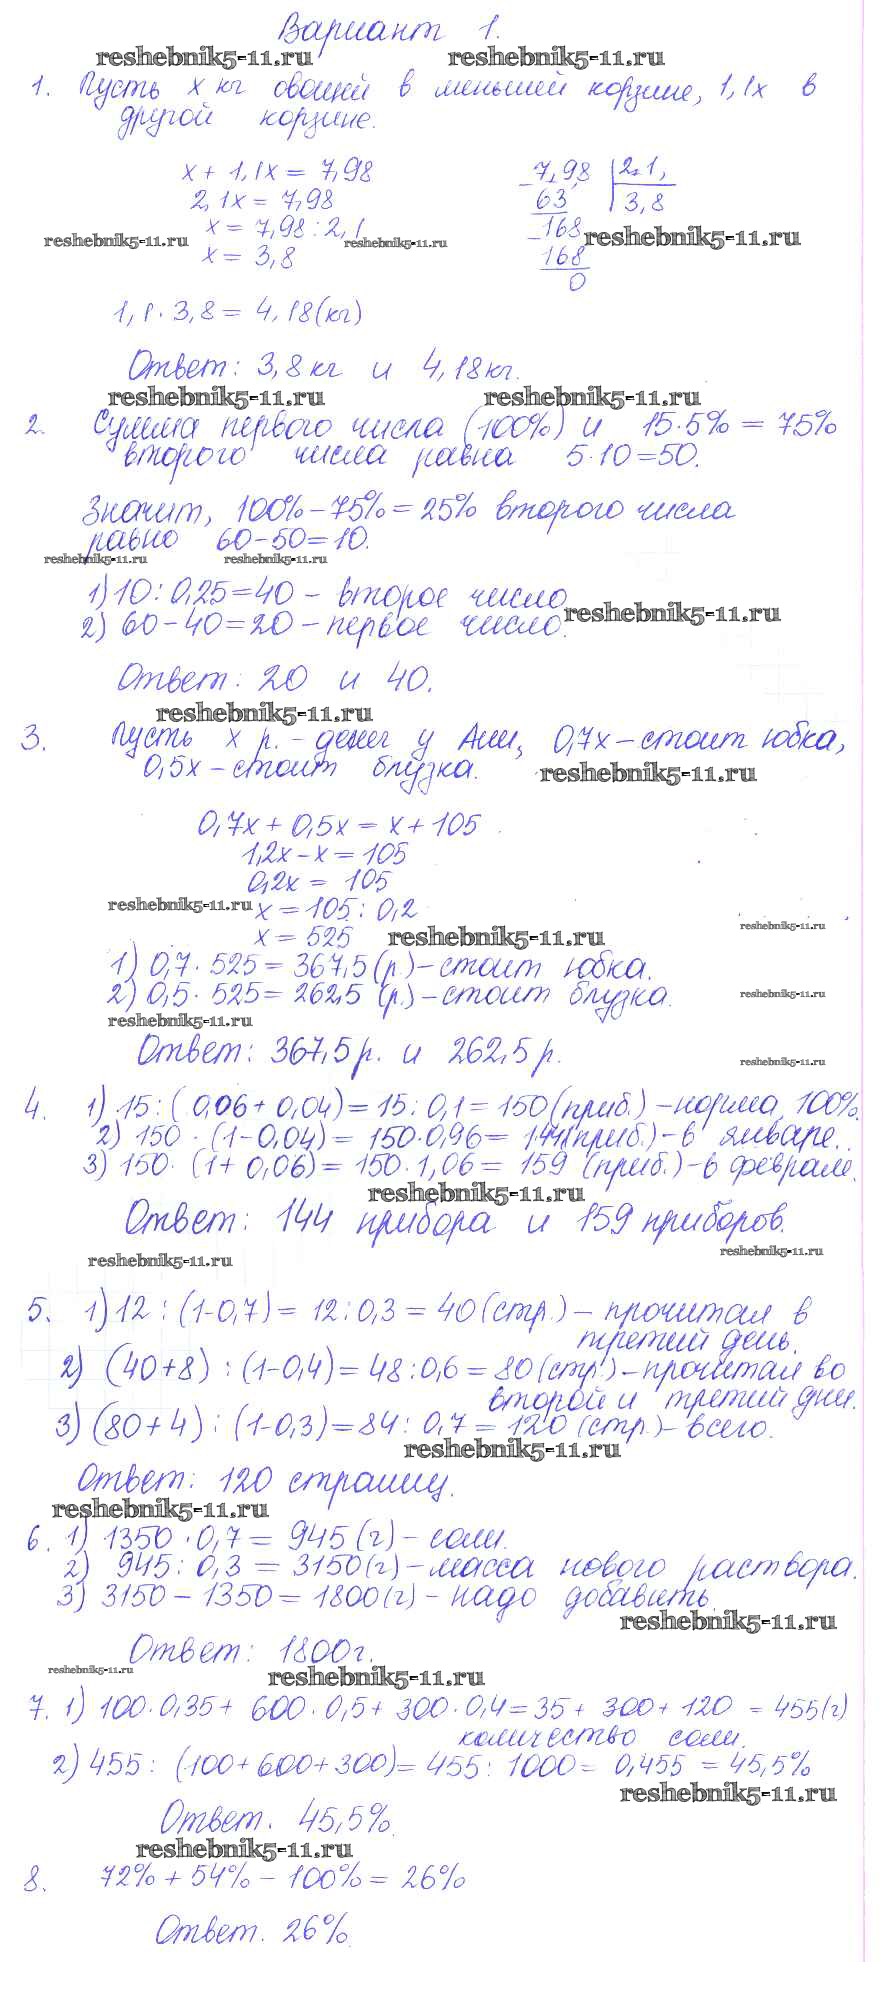 Вариант 1.
reshebnik5-11.ru reshebnik5-11.ru
1. Пусть x кг овощей в меньшей корзине, 1,1x в
другой корзине.
x + 1,1x = 7,98
2,1x = 7,98
x = 7,98 : 2,1
x = 3,8
7,98 | 2,1
63 3,8
168
168
0
reshebnik5-11.ru reshebnik5-11.ru reshebnik5-11.ru
1,1 · 3,8 = 4,18 (кг)
Ответ: 3,8 кг и 4,18 кг.
reshebnik5-11.ru reshebnik5-11.ru
2. Сумма первого числа (100%) и 15·5% = 75%
второго числа равна 5·10=50.
Значит, 100% - 75% = 25% второго числа
равно 60-50=10.
reshebnik5-11.ru reshebnik5-11.ru
1) 10 : 0,25 = 40 - второе число
reshebnik5-11.ru
2) 60 - 40 = 20 - первое число.
Ответ: 20 и 40.
reshebnik5-11.ru
3. Пусть x р. - денег у Ани, 0,7x - стоит юбка,
0,5x - стоит блузка.
reshebnik5-11.ru
0,7x + 0,5x = x + 105
1,2x - x = 105
0,2x = 105
reshebnik5-11.ru x = 105 : 0,2
reshebnik5-11.ru
x = 525 reshebnik5-11.ru
1) 0,7 · 525 = 367,5 (р.) - стоит юбка.
2) 0,5 · 525 = 262,5 (р.) - стоит блузка.
reshebnik5-11.ru
reshebnik5-11.ru
Ответ: 367,5 р. и 262,5 р.
reshebnik5-11.ru
4. 1) 15 : (0,06 + 0,04) = 15 : 0,1 = 150 (приб.) - норма, 100%.
2) 150 · (1 - 0,04) = 150 · 0,96 = 144 (приб.) - в январе.
3) 150 · (1 + 0,06) = 150 · 1,06 = 159 (приб.) - в феврале.
reshebnik5-11.ru
Ответ: 144 прибора и 159 приборов.
reshebnik5-11.ru reshebnik5-11.ru
5. 1) 12 : (1-0,7) = 12 : 0,3 = 40 (стр.) - прочитал в
третий день.
2) (40+8) : (1-0,4) = 48 : 0,6 = 80 (стр.) - прочитал во
второй и третий дни.
3) (80+4) : (1-0,3) = 84 : 0,7 = 120 (стр.) - всего.
reshebnik5-11.ru
Ответ: 120 страниц.
reshebnik5-11.ru
6. 1) 1350 · 0,7 = 945 (г) - соли.
2) 945 : 0,3 = 3150 (г) - масса нового раствора.
3) 3150 - 1350 = 1800 (г) - надо добавить.
reshebnik5-11.ru
Ответ: 1800 г.
reshebnik5-11.ru reshebnik5-11.ru
7. 1) 100 · 0,35 + 600 · 0,5 + 300 · 0,4 = 35 + 300 + 120 = 455 (г)
количество соли.
2) 455 : (100 + 600 + 300) = 455 : 1000 = 0,455 = 45,5%
reshebnik5-11.ru
Ответ. 45,5%.
reshebnik5-11.ru
8. 72% + 54% - 100% = 26%
Ответ. 26%.